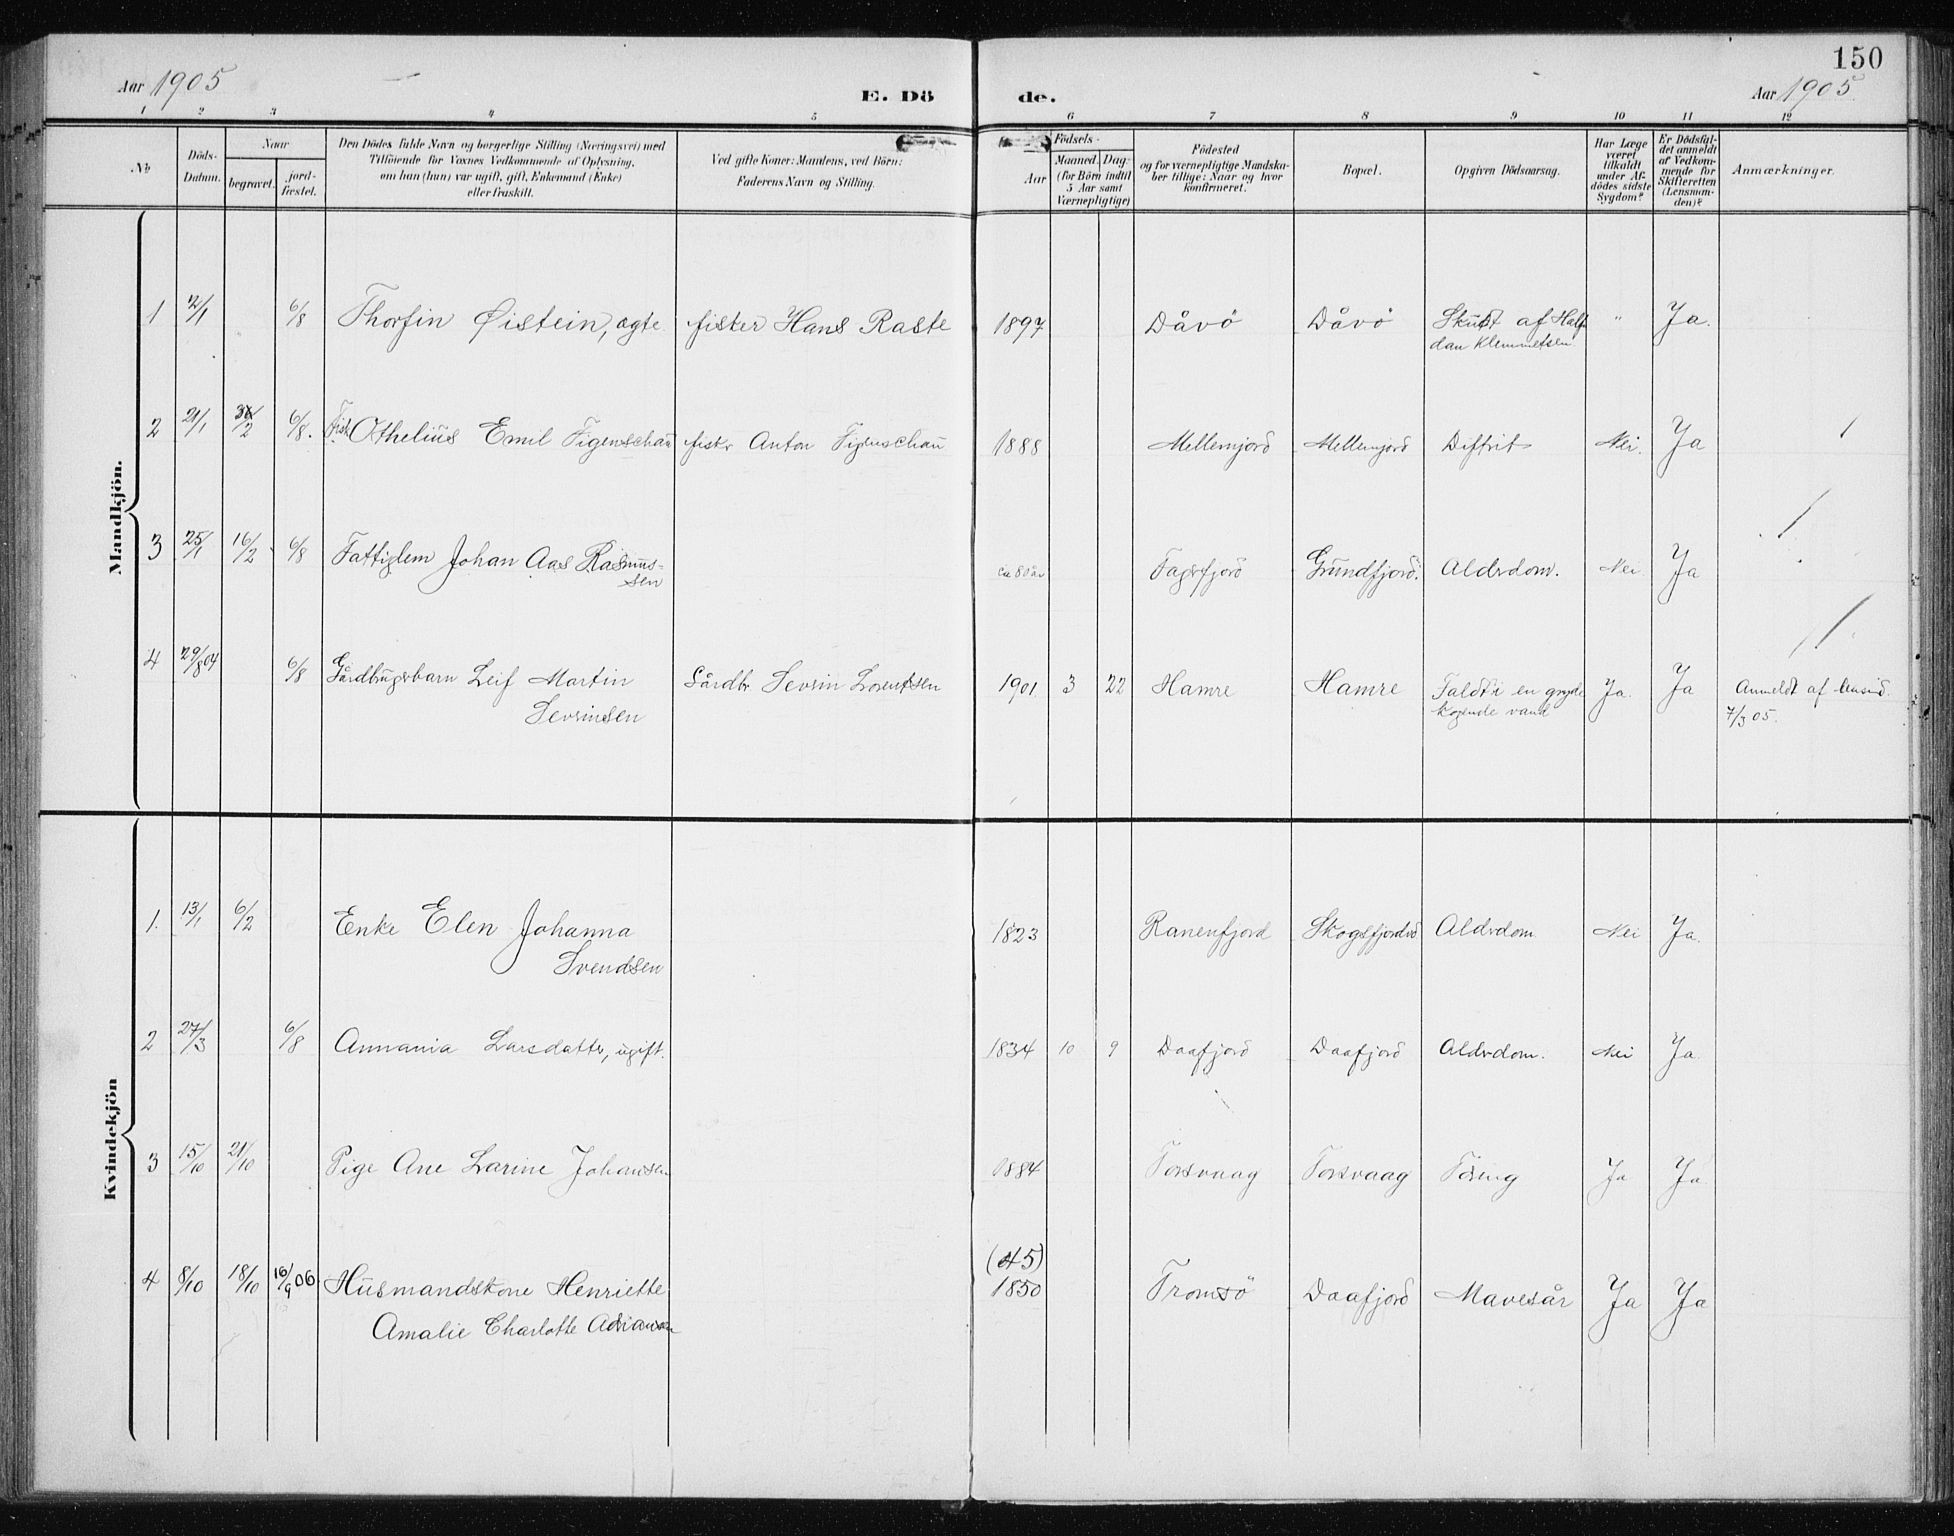 150
Aar 1905
Aar 1905
E. Dö
de.
1 2 3 4 5 6 7 8 9 10 11 12
No
Döds-
Datum.
Naar
begravet.
jord-
fæstet.
Den Dödes fulde Navn og borgerlige Stilling (Næringsvei) med
Tilföiende for Voxnes Vedkommende af Oplysning,
om han (hun) var ugift, gift, Enkemand (Enke)
eller fraskilt.
Ved gifte Koner: Mandens, ved Börn:
Faderens Navn og Stilling.
Födsels-
Aar
Maaned. Dag.
(for Börn indtil
5 Aar samt
Værnepligtige)
Födested
og for værnepligtige Mandska-
ber tillige: Naar og hvor
konfirmeret.
Bopæl.
Opgiven Dödsaarsag.
Har Læge
været
tilkaldt
under Af-
dödes sidste
Sygdom?
Er Dödsfal-
det anmeldt
af Vedkom-
mende for
Skifteretten
(Lensman-
den)?
Anmærkninger.
Mandkjön.
1 2/1 6/8 Thorfin Øistein, ægte fisker Hans Raste 1897 Dåvö Dåvö Skudt af Half " Ja.
dan Klemmetsen
2 21/1 6/8. Fisk Othelius Emil Figenschau fiskr Anton Figenschau 1888 Mellemjord Mellemjord Diftrit Nei. Ja
3 25/1 16/2 6/8 Fattiglem Johan Aas Rasmus- ca 80 år Fagrfjord Grundfjord. Aldrdom. Nei. Ja
sen
4 29/8 04 6/8 Gårdbrugerbarn Leif Martin Gårdbr. Sevrin Lorentsen 1901 3 22 Hamre Hamre Faldt i en gryde Ja. Ja Anmeldt af
Sevrinsen kogende vand 7/3 05.
Kvindekjön
1. 13/1 6/2 Enke Elen Johanna 1823 Ranenfjord Skogsfjord Aldrdom Nei Ja.
Svendsen
2 27/3 6/8 Annania Larsdattr, ugift. 1834 10 9 Daafjord Daafjord Aldrdom. Nei Ja.
3 15/10 21/10 Pige Ane Larine Johansen 1884 Torsvaag Torsvaag Tæring Ja Ja.
(45)
4 8/10 18/10 16/9 06. Husmandskone Henriette 1850 Tromsö Daafjord Mavesår Ja Ja
Amalie Charlotte Adriansen